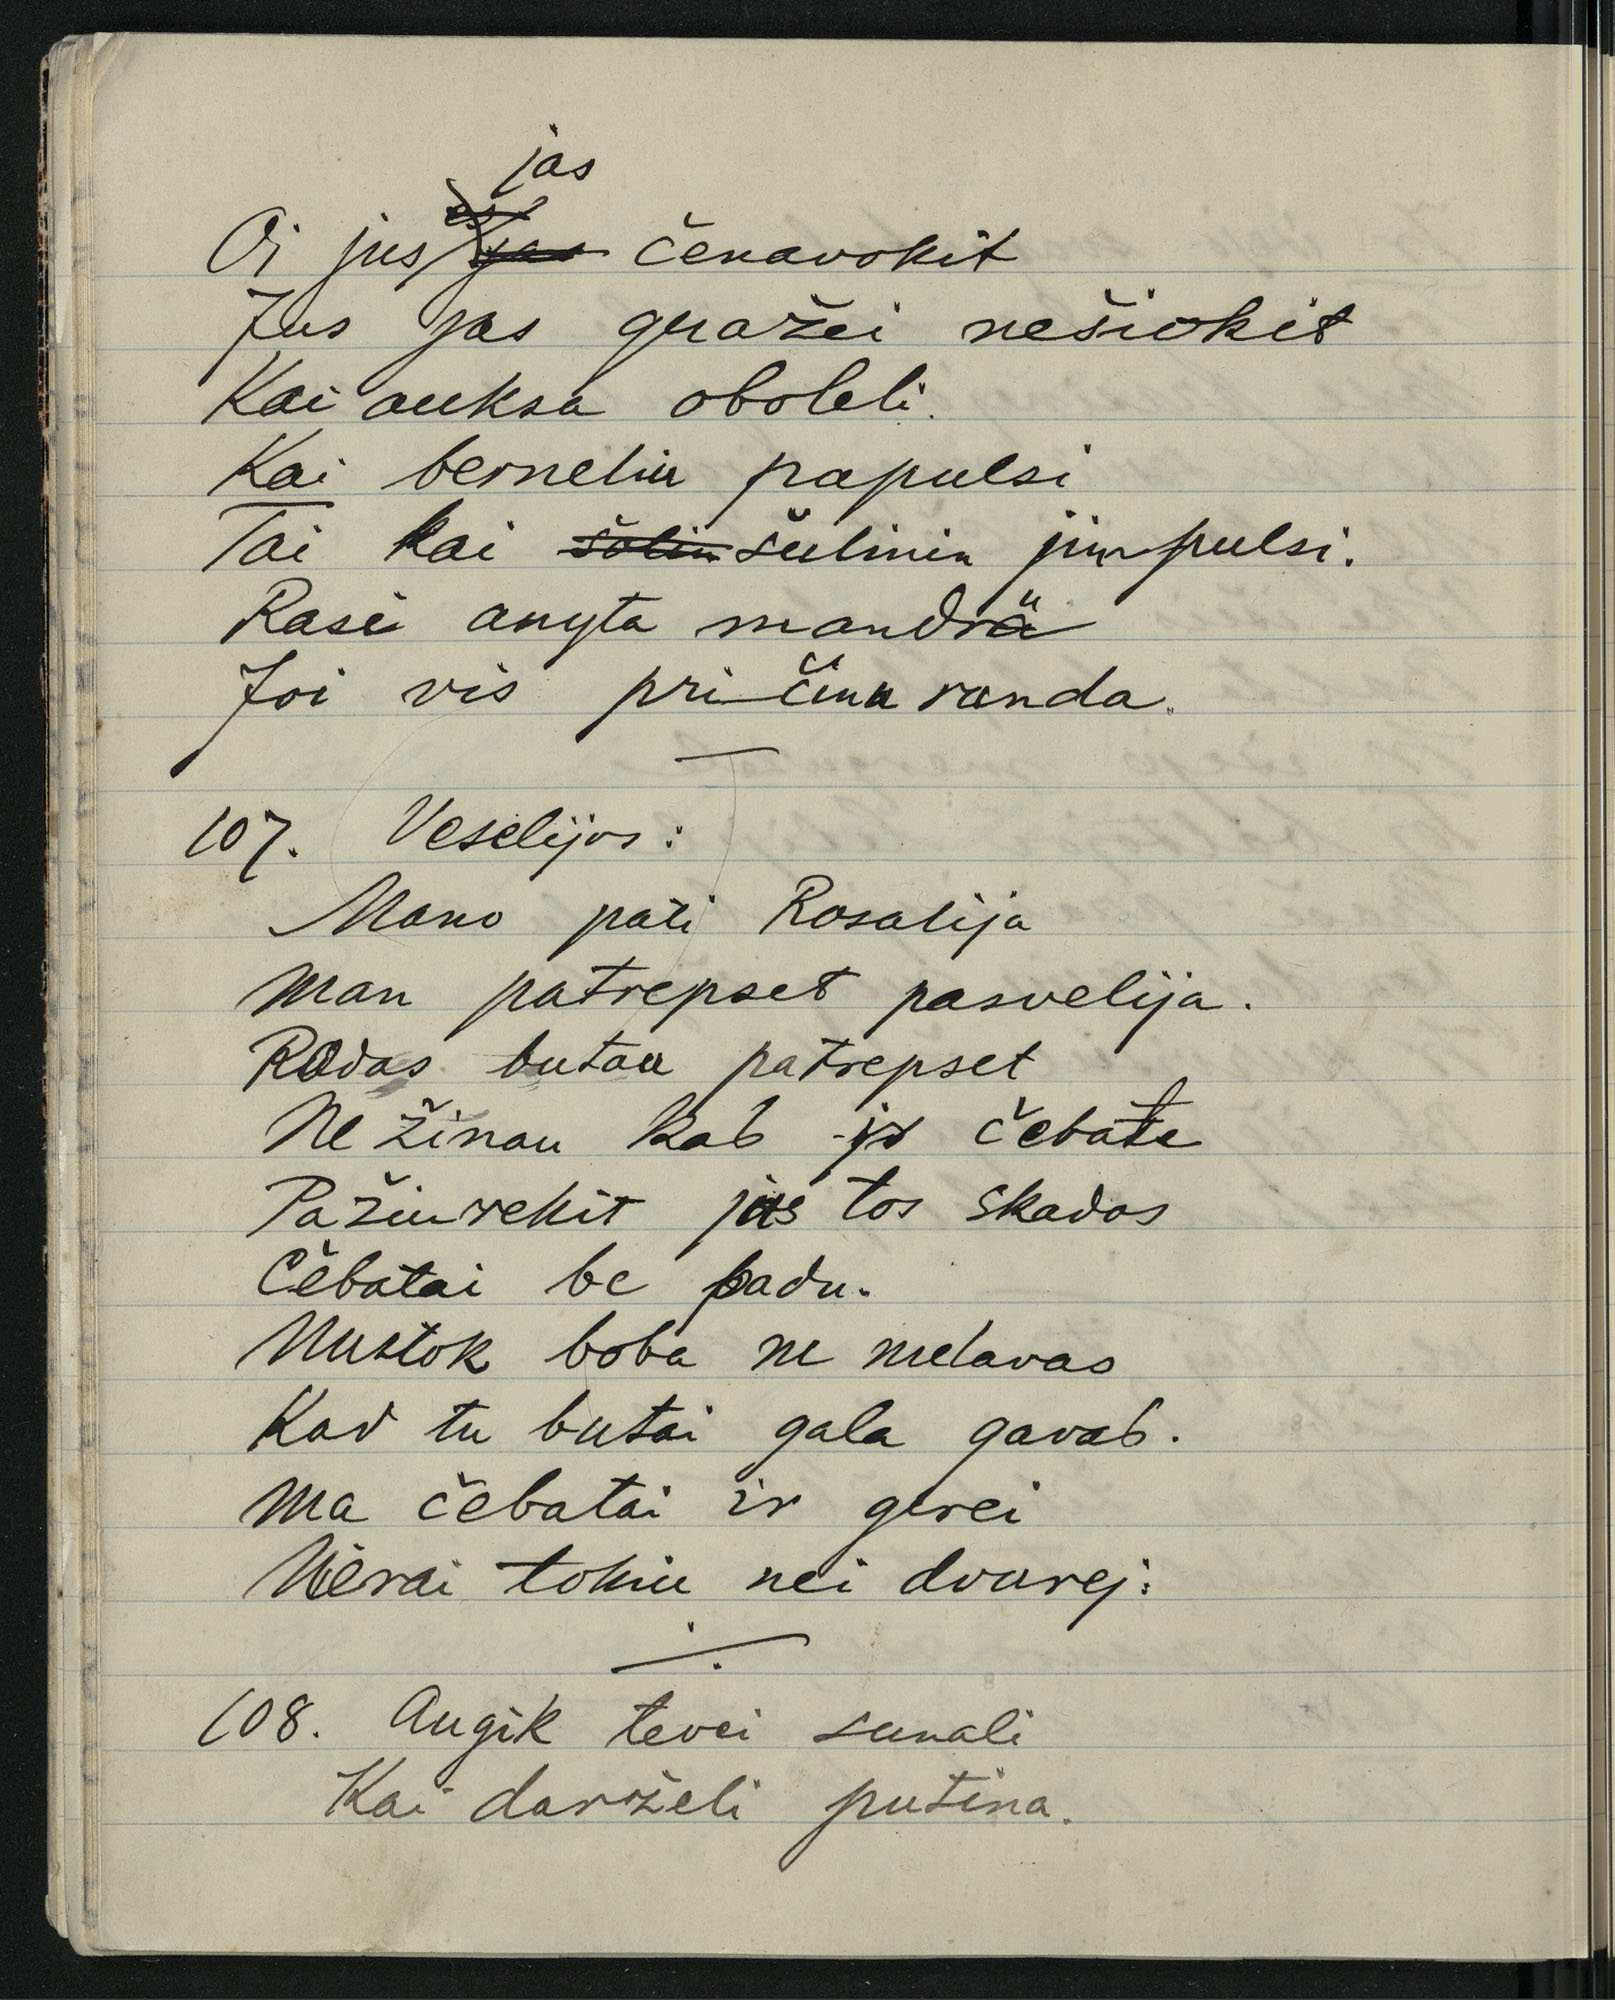 Oi jus jas čenavokit
Jus jas gražei nešiokit
Kai auksa oboleli.
Kai berneliu papulsi
Tai kai šulinin jin pulsi.
Rasi anyta mandra
Joi vis pričinu randa.
107. Veselijos:
Mano pati Rosalija
Man patrepset pasvelija.
Rodas butau patrepset
Ne žinau kab jo čebate
Pažiurekit jus tos skados
Čebatai be padu.
Nustok boba ne melavas
Kad tu butai gala gavab.
Ma čebatai ir gerei
Nėrai tokiu nei dvarej:
108. Augik tevei sunali
Kai darželi putina.